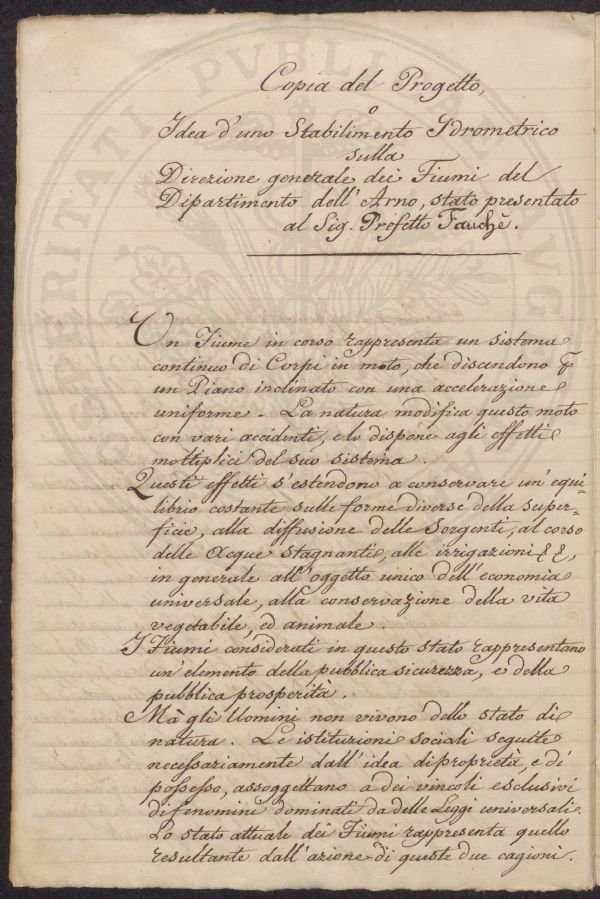 Copia del Progetto,
o
Idea d'uno Stabilimento Idrometrico
sulla
Direzione generale dei Fiumi del
Dipartimento dell'Arno, stato presentato
al Sig. Prefetto Fauchè.
Un Fiume in corso rappresenta un sistema
continuo di Corpi in moto, che discendono
un Piano inclinato con una accelerazione
uniforme - La natura modifica questo moto
con vari accidenti, e lo dispone agli effetti
moltiplici del suo sistema.
Questi effetti s'estendono a conservare un'equi-
librio costante sulle forme diverse della super-
ficie, alla diffusione delle Sorgenti, al corso
delle Acque stagnanti, alle irrigazioni &&,
in generale all'oggetto unico dell'economia
universale, alla conservazione della vita
vegetabile, ed animale.
I Fiumi considerati in questo stato rappresentano
un'elemento della pubblica sicurezza, e della
pubblica prosperità.
Mà gli Uomini non vivono dello stato di
natura. Le istituzioni sociali seguite
necessariamente dall'idea di proprietà, e di
possesso, assoggettano a dei vincoli esclusivi
di fenomini dominati da delle Leggi universali.
Lo stato attuale dei Fiumi rappresenta quello
resultante dall'azione di queste due cagioni.